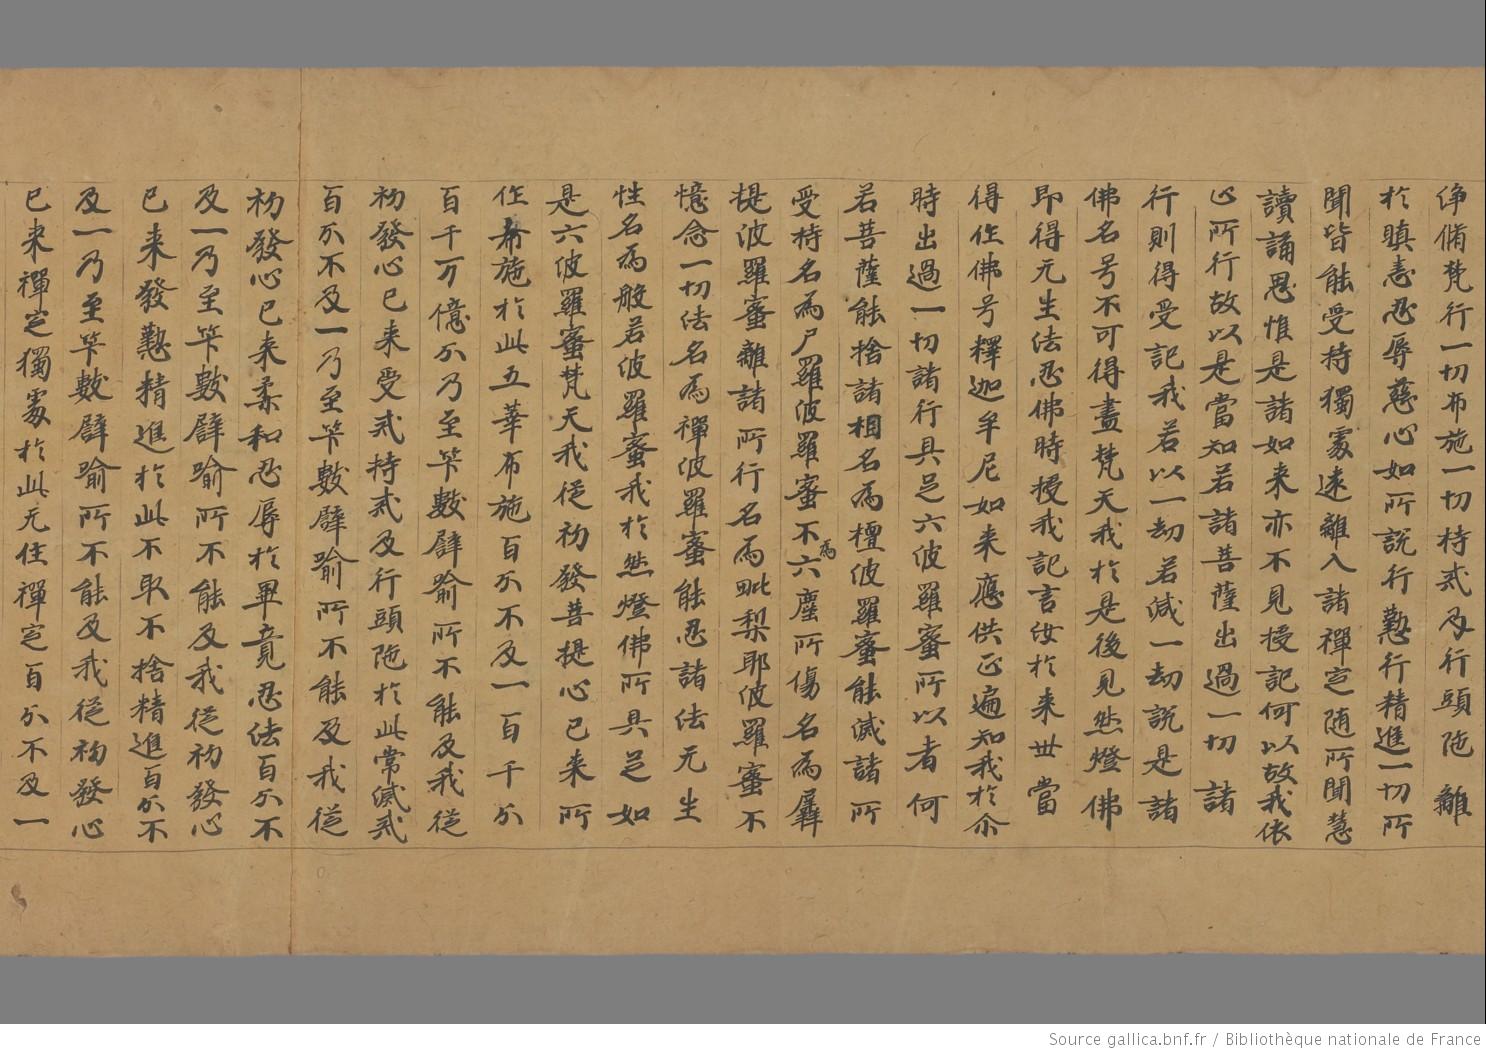 淨脩梵行一切布施一切持戒及行頭陁離
於瞋恚忍辱慈心如所說行懃行精進一切所
聞皆能受持獨處遠離入諸禪定随所聞慧
讀誦思惟是諸如来亦不見授記何以故我依
止所行故以是當知若諸菩薩出過一切諸
行則得受記我若以一劫若減一劫說是諸
佛名号不可得盡梵天我於是後見然燈佛
即得无生法忍佛時授我記言汝於来世當
得作佛号釋迦牟尼如来應供正遍知我於尒
時出過一切諸行具足六波羅蜜所以者何
若菩薩能捨諸相名為檀波羅蜜能滅諸所
受持名為尸羅波羅蜜不為六塵所傷名為羼
提波羅蜜離諸所行名為毗梨耶波羅蜜不
憶念一切法名為禪波羅蜜能忍諸法无生
性名為般若波羅蜜我於然燈佛所具足如
是六波羅蜜梵天我従初發菩提心已来所
作布施於此五華布施百分不及一百千分
百千万億分乃至筭數譬喻所不能及我従
初發心已来受戒持戒及行頭陁於此常滅戒
百分不及一乃至筭數譬喻所不能及我従
初發心已来柔和忍辱於畢竟忍法百分不
及一乃至筭數譬喻所不能及我従初發心
已来發懃精進於此不取不捨精進百分不
及一乃至筭數譬喻所不能及我従初發心
已来禪定獨處於此无住禪定百分不及一
Source gallica.bnf.fr / Bibliothèque nationale de France